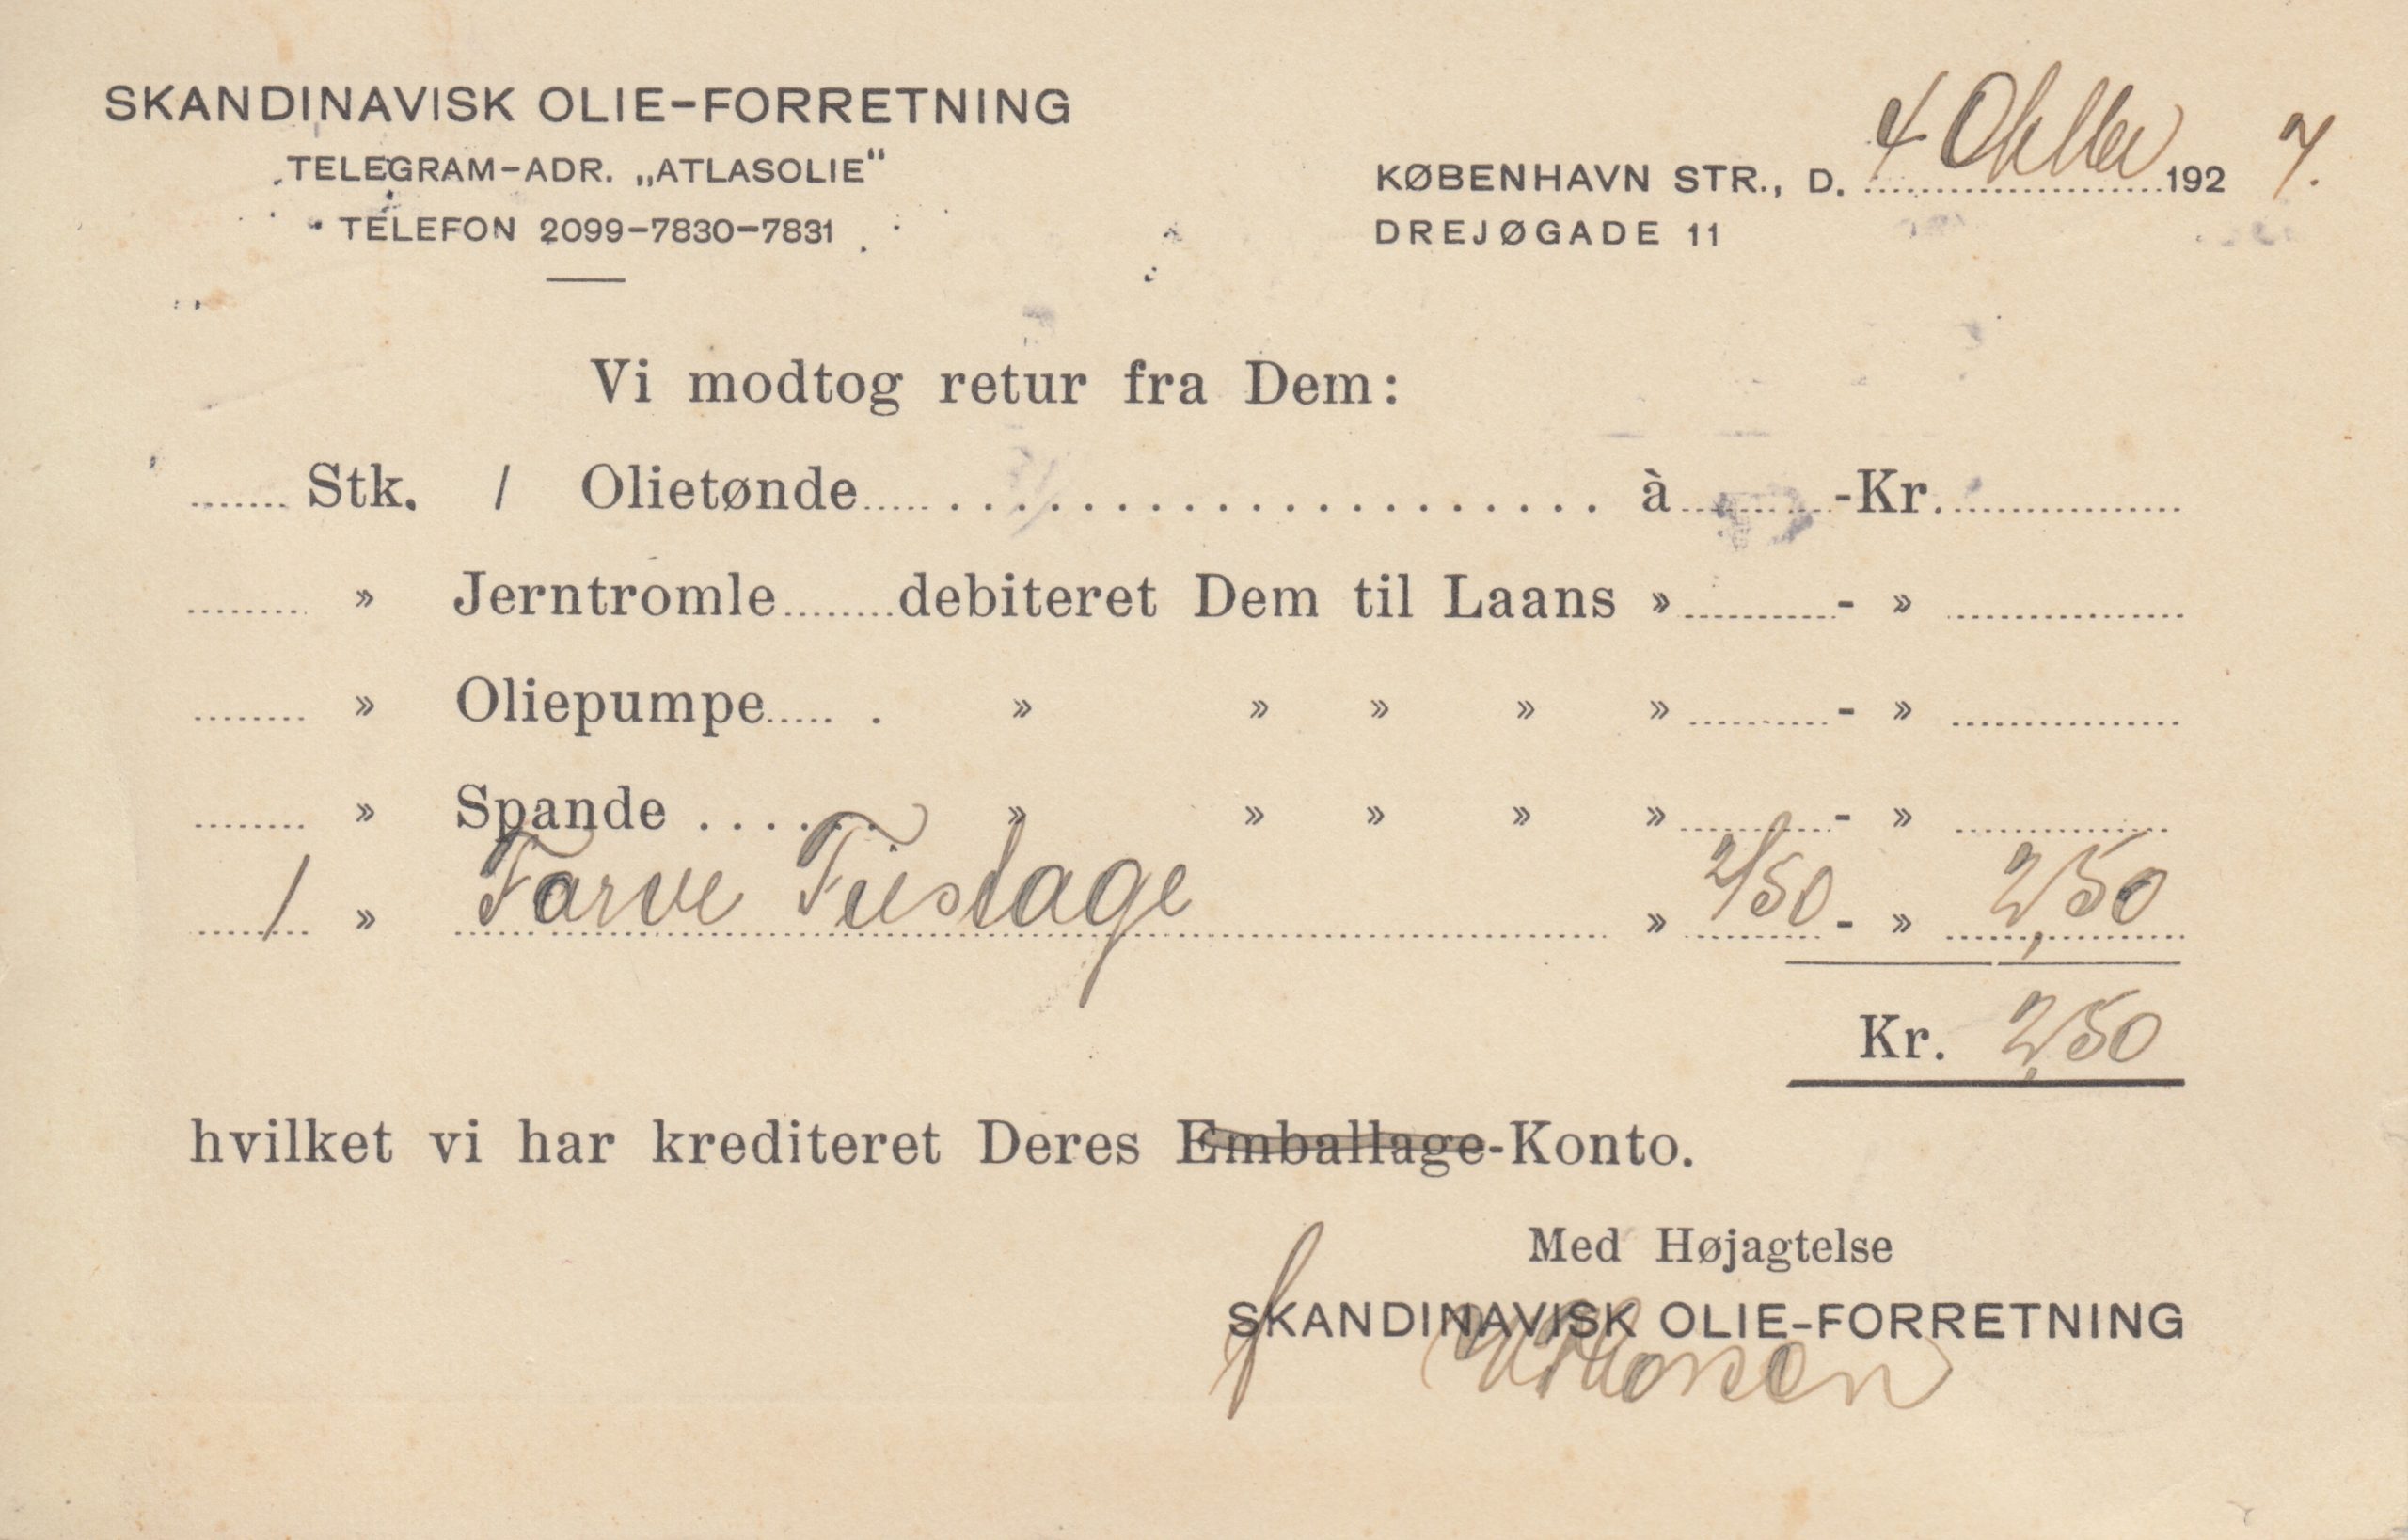 SKANDINAVISK OLIE-FORRETNING
TELEGRAM-ADR. „ATLASOLIE"
TELEFON 2099-7830-7831
KØBENHAVN STR., D. 4 Oktober 1927.
DREJØGADE 11
Vi modtog retur fra Dem:
........ Stk. / Olietønde ........................ à ........ -Kr. ........
........ » Jerntromle ........ debiteret Dem til Laans » ........ - » ........
........ » Oliepumpe ...... . » » » » » ........ - » ........
........ » Spande ...... » » » » » ........ - » ........
1 » Farve Fustage » 2/50 - » 2,50
Kr. 2,50
hvilket vi har krediteret Deres Emballage-Konto.
Med Højagtelse
SKANDINAVISK OLIE-FORRETNING